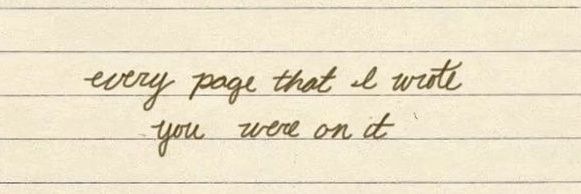 every page that I wrote
you were on it